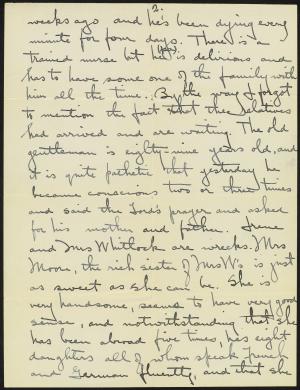 2.
weeks ago and he's been dying every
minute for four days. There is a
trained nurse but he (Gov) is delirious and
has to have some one of the family with
him all the time. By the way I forgot
to mention the fact that the relatives
had arrived and are waiting. The old
gentleman is eighty-nine years old, and
it is quite pathetic that yesterday he
became conscious two or three times
and said the Lord's prayer and asked
for his mother and father. Irene
and Mrs Whitlock are wrecks. Mrs
Moore, the rich sister of Mrs W's is just
as sweet as she can be. She is
very handsome, seems to have very good
sense, and notwithstanding that she
has been abroad five times, has eight
daughters all of whom speak French
and German fluently, and that she